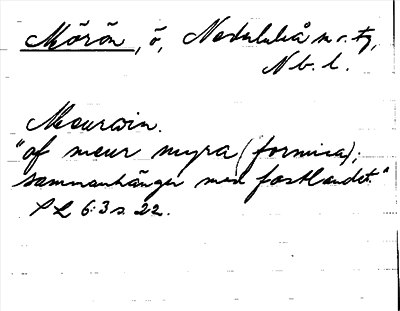 Mörön, ö, Nederluleå sn o. tg,
Nb. l.
Meurören.
"af meur myra (formica);
sammanhänger med fastlandet."
PL 6:3 s. 22.